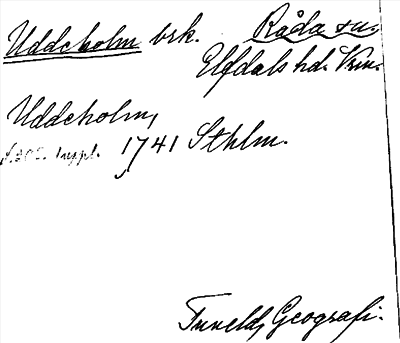 Uddeholm brk. Råda sn.
Elfdals hd. Vrm.
Uddeholm,
s. 205. 1 uppl. 1741 Sthlm.
Tunelds Geografi.